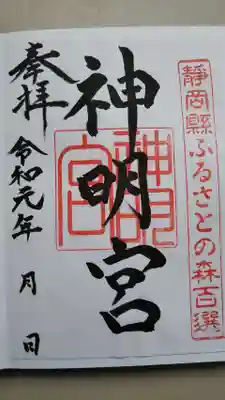 静岡縣ふるさとの森百選
神明宮
神明宮
奉拝
令和元年　月　日